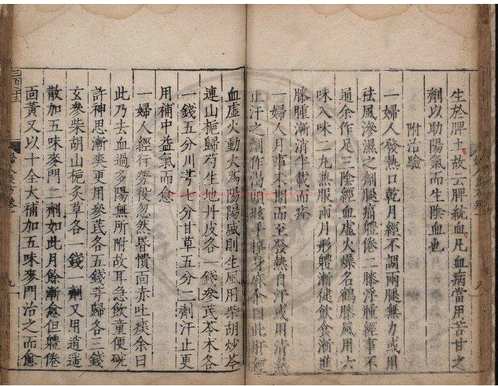 生於脾土故云脾統血凡血病當用苦甘之
劑以助陽氣而生陰血也
附治驗
一婦人發熱口乾月經不調兩腿無力或用
祛風滲濕之劑腿痛體倦二膝浮腫經事不
通余作足三陰經血虛火燥名鶴膝風用六
味八味二丸兼服兩月形體漸健飲食漸進
膝腫漸消半載而痊
一婦人月事不期而至發熱自汗或用清熱
止汗之劑作渴頭痛手掉身麻余以此肝經
血虛火動火爲陽陽風則生風用柴胡炒芩
連山梔歸芍生地丹皮各一錢參芪苓朮各
一錢五分川芎七分甘草五分二劑汗止更
用補中益氣而愈
一婦人經行勞役忽然昏憒面赤吐痰余曰
此乃去血過多陽無所附故耳急飲童便
許神思漸爽更用參芪各五錢芎歸各三錢
玄參柴胡山梔炙草各一錢一劑又用逍遙
散加五味麥門二劑如此月餘漸愈但體倦
面黃又以十全大補加五味麥門治之而愈